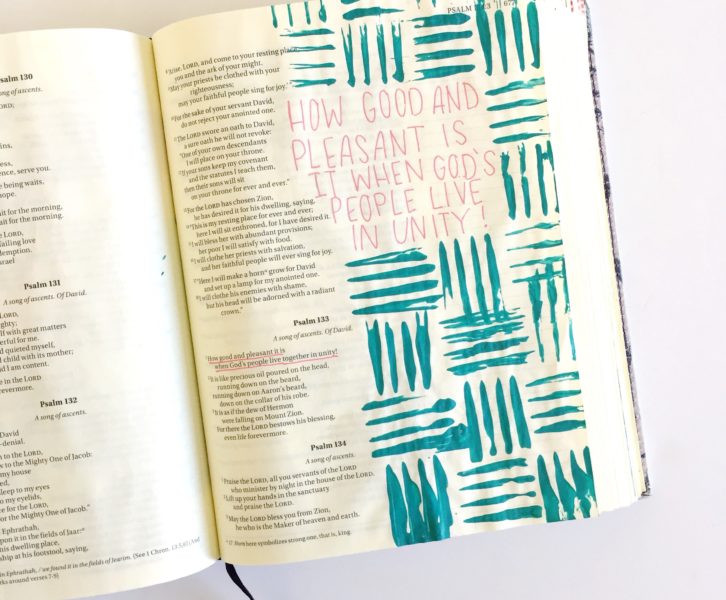 salm 130
ong of ascents.
ORD;
ins,
ess,
ence, serve you.
being waits,
hope.
ait for the morning,
ait for the morning.
e LORD,
failing love
demption.
srael
Psalm 131
A song of ascents. Of David.
LORD,
ghty;
elf with great matters
erful for me.
d quieted myself,
d child with its mother;
d I am content.
e in the LORD
evermore.
Psalm 132
A song of ascents.
David
-denial.
h to the LORD,
s to the Mighty One of Jacob:
my house
ed,
leep to my eyes
to my eyelids,
ce for the LORD,
or the Mighty One of Jacob."
Ephrathah,
upon it in the fields of Jaar:
is dwelling place,
ship at his footstool, saying,
in Ephrathah, / we found it in the fields of Jearim. (See 1 Chron. 13:5,6) (And
rks around verses 7-9)
PSALM
677
8 'Arise, LORD, and come to your resting place,
you and the ark of your might.
9 May your priests be clothed with your
righteousness;
may your faithful people sing for joy.'"
10 For the sake of your servant David,
do not reject your anointed one.
11 The LORD swore an oath to David,
a sure oath he will not revoke:
"One of your own descendants
I will place on your throne.
12 If your sons keep my covenant
and the statutes I teach them,
then their sons will sit
on your throne for ever and ever."
13 For the LORD has chosen Zion,
he has desired it for his dwelling, saying,
14 "This is my resting place for ever and ever;
here I will sit enthroned, for I have desired it.
15 I will bless her with abundant provisions;
her poor I will satisfy with food.
16 I will clothe her priests with salvation,
and her faithful people will ever sing for joy.
17 "Here I will make a horn grow for David
and set up a lamp for my anointed one.
18 I will clothe his enemies with shame,
but his head will be adorned with a radiant
crown."
Psalm 133
A song of ascents. Of David.
1 How good and pleasant it is
when God's people live together in unity!
2 It is like precious oil poured on the head,
running down on the beard,
running down on Aaron's beard,
down on the collar of his robe.
3 It is as if the dew of Hermon
were falling on Mount Zion.
For there the LORD bestows his blessing,
even life forevermore.
Psalm 134
A song of ascents.
1 Praise the LORD, all you servants of the LORD
who minister by night in the house of the LORD.
2 Lift up your hands in the sanctuary
and praise the LORD.
3 May the LORD bless you from Zion,
he who is the Maker of heaven and earth.
17 Horn here symbolizes strong one, that is, king.
HOW GOOD AND
PLEASANT IS
IT WHEN GOD'S
PEOPLE LIVE
IN UNITY!